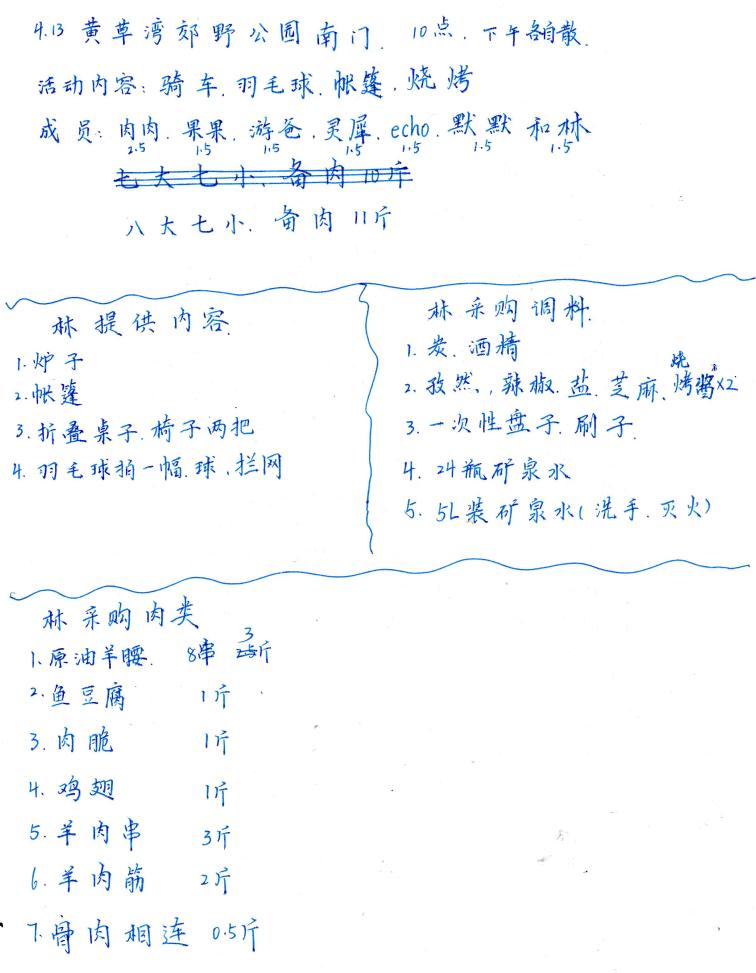 4.13 黄草湾郊野公园南门. 10点. 下午各自散.
活动内容: 骑车. 羽毛球. 帐篷. 烧烤
成员: 肉肉. 果果. 游爸. 灵犀. echo. 默默 和林
2.5 1.5 1.5 1.5 1.5 1.5 1.5
七大七小. 备肉10斤
八大七小. 备肉 11斤
林提供内容
1. 炉子
2. 帐篷
3. 折叠桌子. 椅子两把
4. 羽毛球拍一幅. 球. 拦网
林采购调料.
1. 炭. 酒精
2. 孜然. 辣椒. 盐. 芝麻. 烧烤酱×2
3. 一次性盘子. 刷子.
4. 24瓶矿泉水
5. 5L装矿泉水(洗手. 灭火)
林采购肉类
1. 原油羊腰. 8串 3斤
2. 鱼豆腐 1斤
3. 肉脆 1斤
4. 鸡翅 1斤
5. 羊肉串 3斤
6. 羊肉筋 2斤
7. 骨肉相连 0.5斤